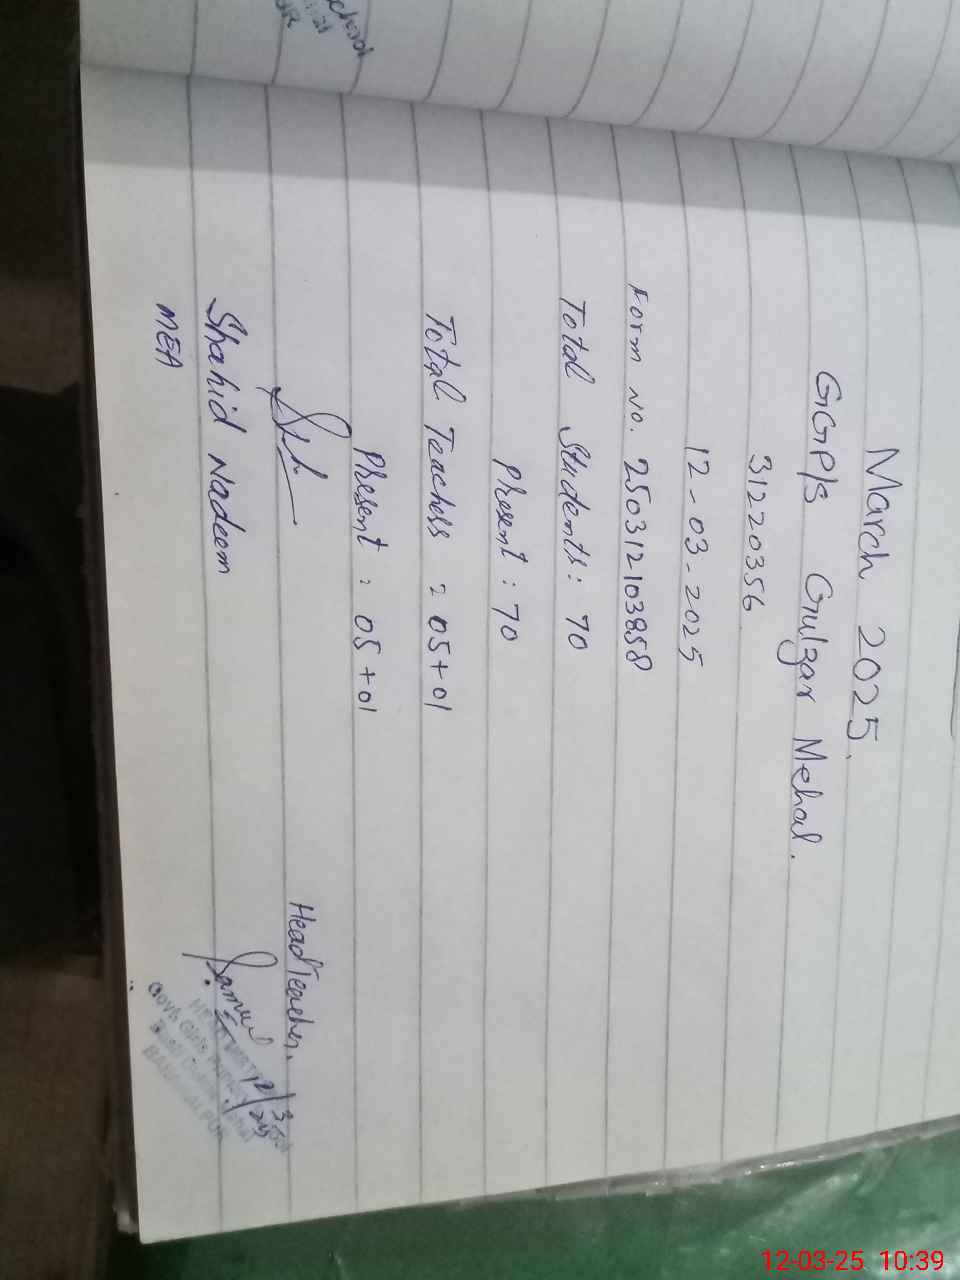 March 2025.
GGP/S Gulzar Mehal.
31220356
12-03-2025
Form No. 250312103858
Total Students: 70
Present: 70
Total Teachers = 05+01
Present = 05+01
Shahid Nadeem
MEA
Head Teacher.
HEAD MISTRESS
Govt. Girls Primary School
BAHAWALPUR
12-03-25 10:39